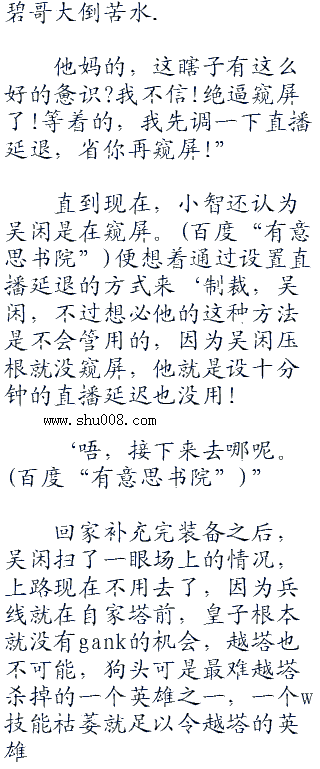 碧哥大倒苦水.
他妈的，这瞎子有这么
好的意识?我不信!绝逼窥屏
了!等着的，我先调一下直播
延迟，省你再窥屏!”
直到现在，小智还认为
吴闲是在窥屏。(百度“有意
思书院”)便想着通过设置直
播延迟的方式来‘制裁，吴
闲，不过想必他的这种方法
是不会管用的，因为吴闲压
根就没窥屏，他就是设十分
钟的直播延迟也没用!
www.shu008.com
‘唔，接下来去哪呢。
(百度“有意思书院”)”
回家补充完装备之后，
吴闲扫了一眼场上的情况，
上路现在不用去了，因为兵
线就在自家塔前，皇子根本
就没有gank的机会，越塔也
不可能，狗头可是最难越塔
杀掉的一个英雄之一，一个w
技能祜萎就足以令越塔的英
雄